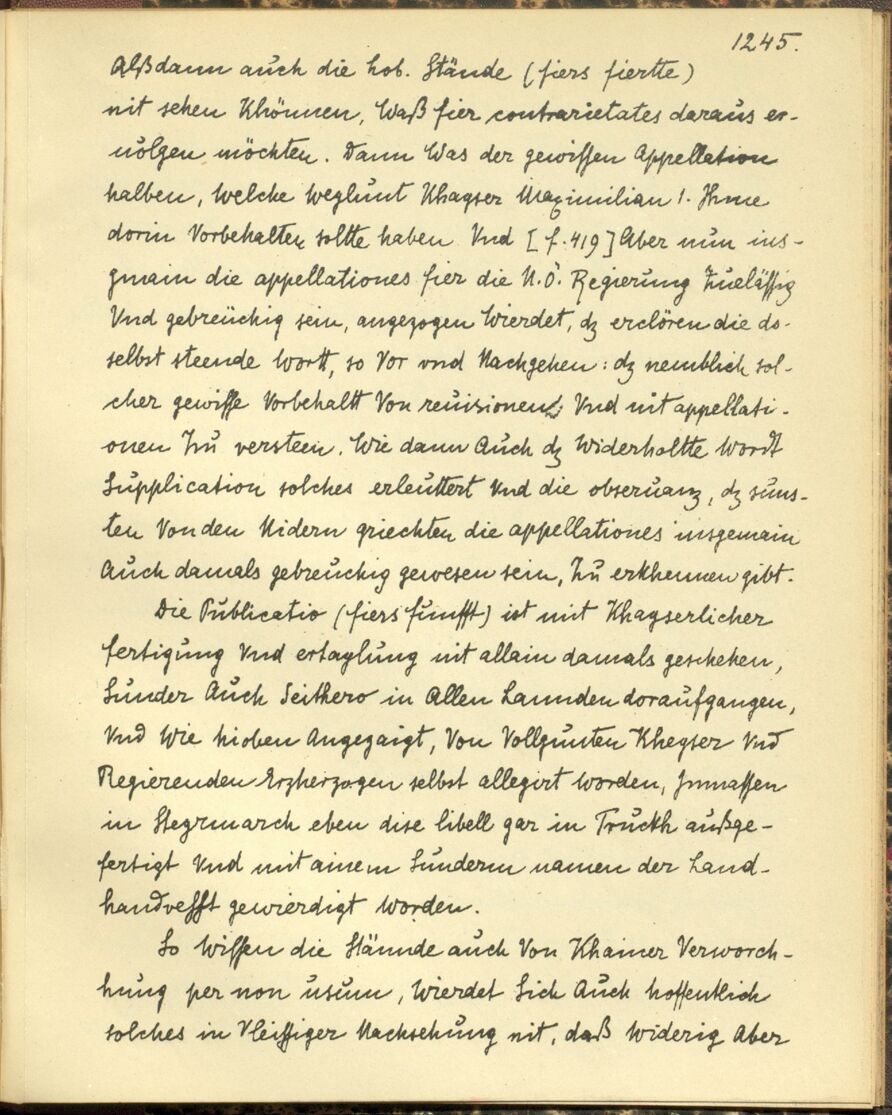 1245.
Alßdann auch die hob. Stände (fiers fiertte)
nit sehen Khönnen, Waß fier contrarietates daraus er-
uolgen möchten. Dann Was der gewissen Appellation
halben, Welche Weylunt Khayser Maximilian 1. Ihme
dorin Vorbehalten soltte haben Vnd [f. 419] Aber nun ins-
gmain die appellationes fier die N.Ö. Regierung Zueläßig
Vnd gebreüchig sein, angezogen Wierdet, dz erclören die do-
selbst steende Wortt, so Vor vnd Nachgehen: dz nemblich sol-
cher gewisse Vorbehaltt Von reuisionen Vnd nit appellati-
onen Zu versteen. Wie dann Auch dz Widerholtte Wordt
Supplication solches erleuttert Vnd die obseruanz, dz suns-
ten Von den Nidern griechten die appellationes insgemain
Auch damals gebreuchig gewesen sein, Zu erkhennen gibt.
Die Publicatio (fiers funfft) ist mit Khayserlicher
fertigung Vnd ertaylung nit allain damals geschehen,
Sunder Auch Seithero in Allen Lannden doraufgangen,
Vnd Wie hioben Angezaigt, Von Vollgunten Kheyser Vnd
Regierenden Erzherzogen selbst allegirt worden, Inmassen
in Steyrmarch eben dise libell gar in Truckh außge-
fertigt Vnd mit ainem Sunderm namen der Land-
handvesst gewierdigt worden.
So Wissen die Stännde auch Von Khainer Verworch-
hung per non usum, Wierdet Sich Auch hoffentlich
solches in Vleissiger Nachsehung nit, daß Widerig Aber